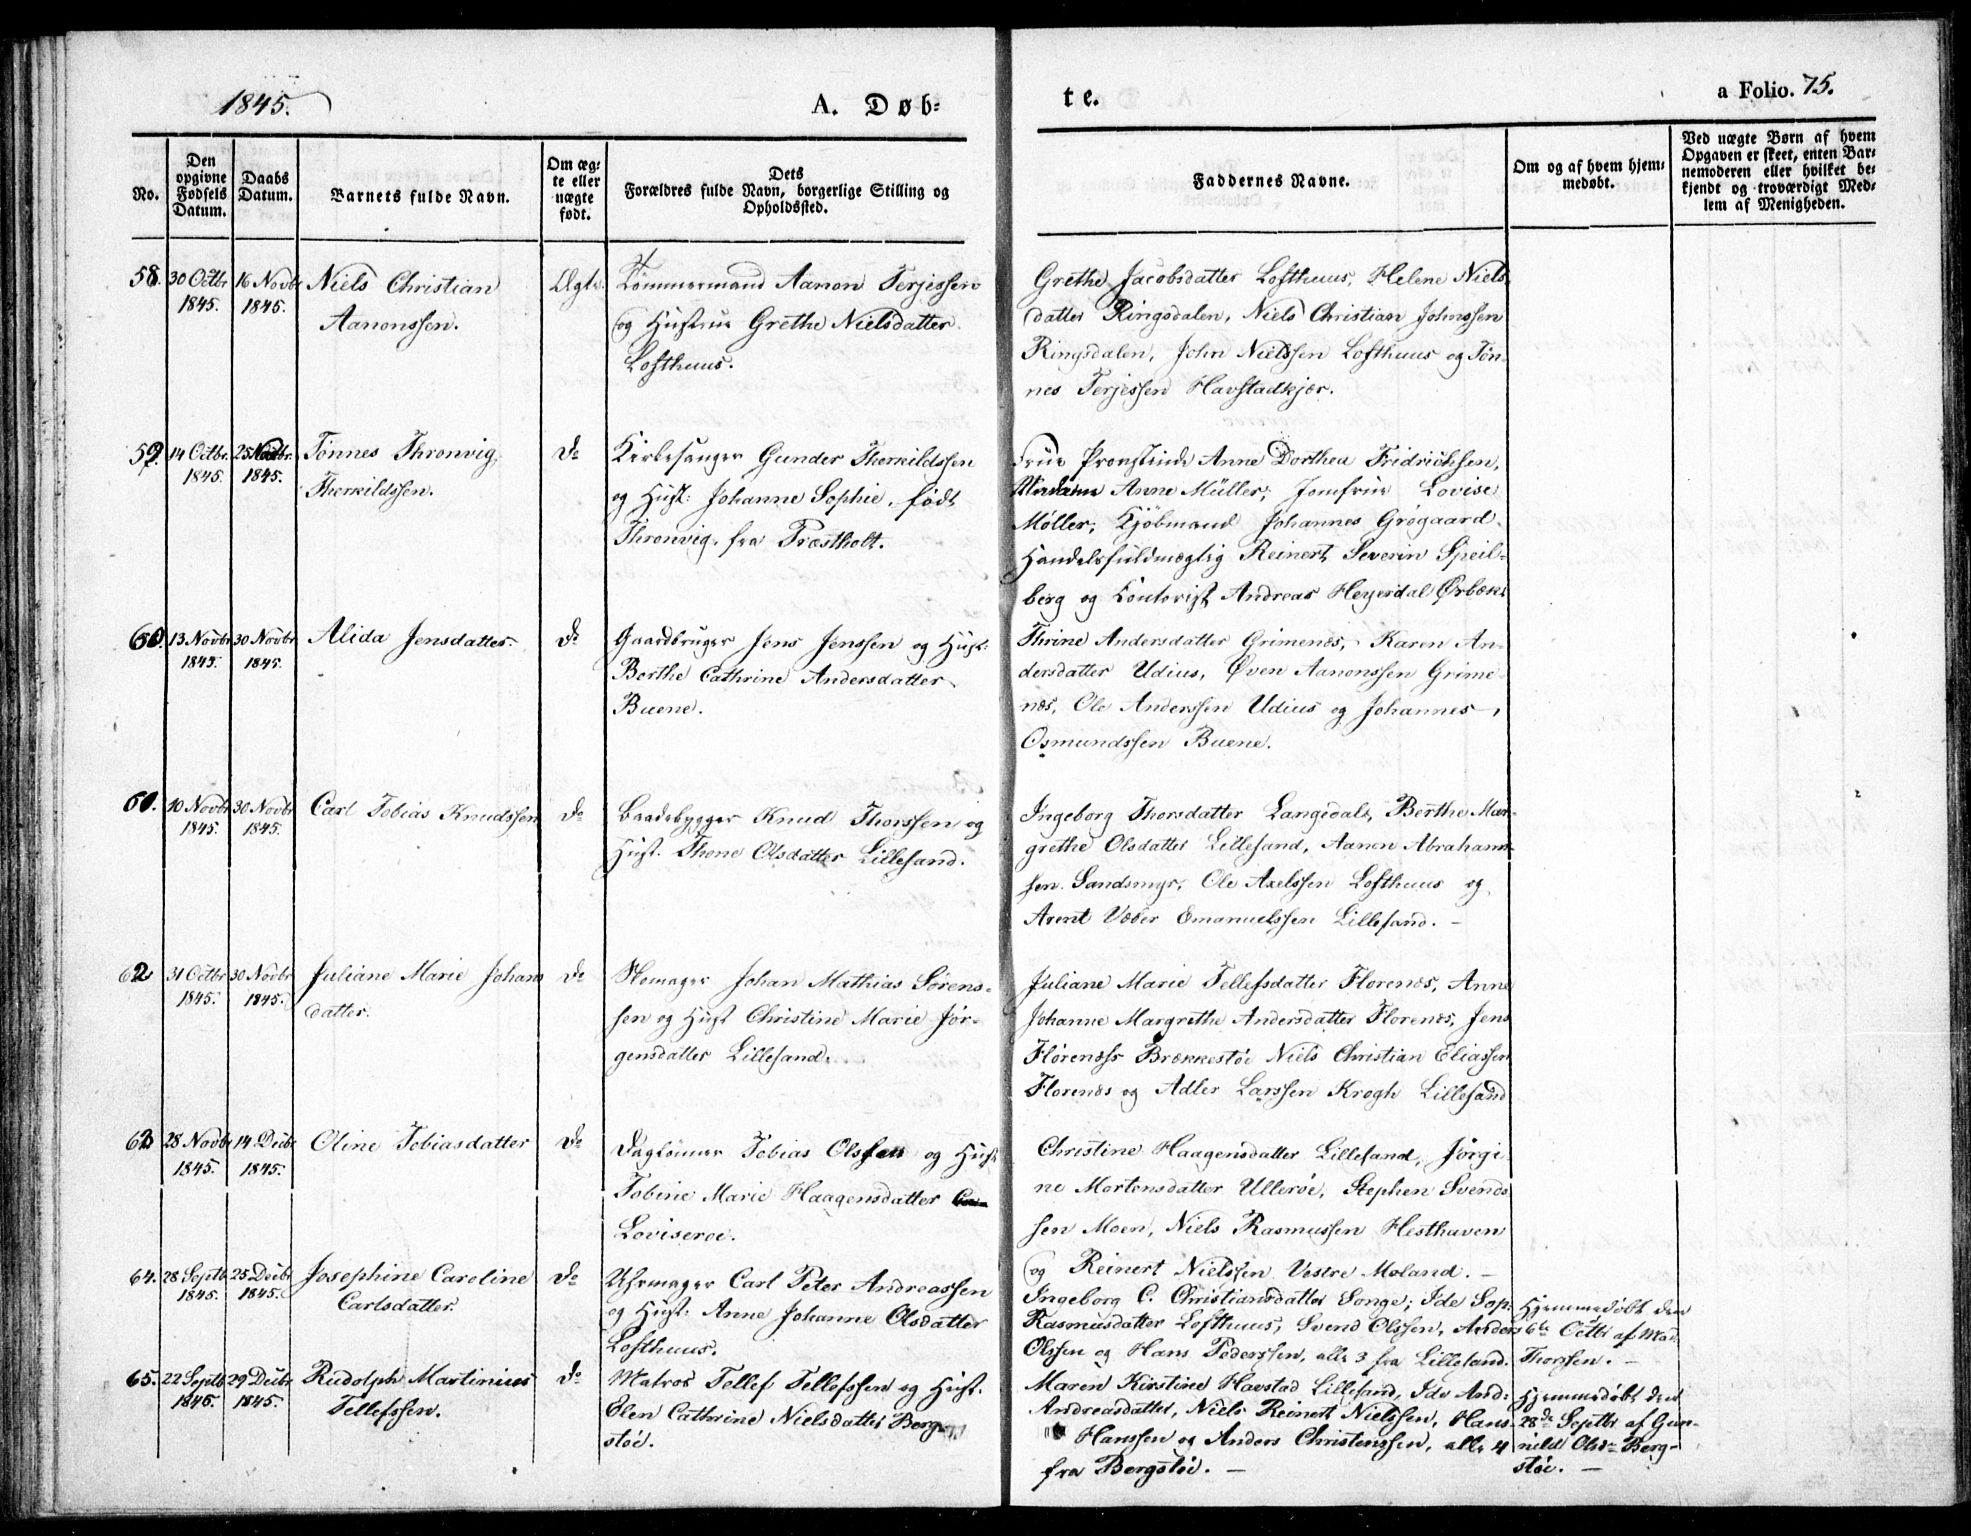 1845.
A. Døb-
te.
a Folio. 75.
No.
Den opgivne Fødsels Datum.
Daabs Datum.
Barnets fulde Navn.
Om ægte eller uægte født.
Dets Forældres fulde Navn, borgerlige Stilling og Opholdssted.
Faddernes Navne.
Om og af hvem hjemmedøbt.
Ved uægte Børn af hvem Opgaven er skeet, enten Barnemoderen eller hvilket bekjendt og troværdigt Medlem af Menigheden.
58. 30 Octbr 1845. 16 Novbr 1845.
Niels Christian
Aanonssen.
Ægte.
Tømmermand Aanon Terjessen
og Hustrue Grethe Nielsdatter
Lofthuus.
Grethe Jacobsdatter Lofthuus, Helene Niels
datter Ringsdalen, Niels Christian Johnssen
Ringsdalen, John Nielssen Lofthuus og Tøn-
nes Terjessen Havstadkjær.
59. 14 Octbr. 1845. 25 Novbr. 1845.
Tønnes Thronvig
Therkildssen.
do
Kirkesanger Gunder Therkildssen
og Hust: Johanne Sophie, født
Thronvig. fra Præstholt.
Frue Provstinde Anne Dorthea Fridrichsen,
Madame Anne Müller; Jomfrue Lovise
Møller, Kjøbmand Johannes Grøgaard
Handelsfuldmægtig Reinert Severin Speil-
berg og Contorist Andreas Heyerdal Ørbæk.
60. 13 Novbr 1845. 30 Novbr 1845.
Alida Jensdatter.
do
Gaardbruger Jens Jenssen og Hust:
Berthe Cathrine Andersdatter
Buene.
Thrine Andersdatter Grimenæs, Karen An-
dersdatter Udius, Øven Aanonssen Grime-
næs, Ole Anderssen Udius og Johannes
Osmundssen Buene.
61. 10 Novbr 1845. 30 Novbr 1845.
Carl Tobias Knudssen
do
Baadebygger Knud Thorssen og
Hust. Thone Olsdatter Lillesand.
Ingeborg Thorsdatter Langedal, Berthe Mar-
grethe Olsdatter Lillesand, Aanon Abraham-
sen Sandsmyr, Ole Axelssen Lofthuus og
Arent Veber Emanuelssen Lillesand. –
62 31 Octbr 1845. 30 Novbr 1845.
Juliane Marie Johans
datter.
do
Skomager Johan Mathias Sørens-
sen og Hust Christine Marie Jør-
gensdatter Lillesand.
Juliane Marie Tellefsdatter Florenæs, Anne
Johanne Margrethe Andersdatter Florenæs, Jens
Florenæss Brækkestøe Niels Christian Eliassen
Florenæs og Adler Larssen Krogh Lillesand
63 28 Novbr 1845. 14 Decbr 1845.
Oline Tobiasdatter
do
Daglønner Tobias Olssen og Hust
Tobine Marie Haagensdatter
Loviseroe.
Christine Haagensdatter Lillesand, Jørgi-
ne Mortensdatter Ullerøe, Stephen Svends
sen Moen, Niels Rasmussen Hesthaven
og Reinert Nielssen Vestre Moland. –
64. 28 Septb. 1845. 25 Decbr 1845.
Josephine Caroline
Carlsdatter
do
Uhrmager Carl Peter Andreassen
og Hust: Anne Johanne Olsdatter
Lofthuus.
Ingeborg C. Christiansdatter Songe; Ide Sop:
Rasmusdatter Lofthuus, Svend Olssen, Anders
Olssen og Hans Pederssen, alle 3 fra Lillesand.
Hjemmedøbt den
6te Octbr af
Thorssen. –
65. 22 Septb 1845. 29 Decbr 1845.
Rudolph Martinius
Tellefssen.
do
Matros Tellef Tellefssen og Hust.
Elen Cathrine Nielsdatter Berg-
støe.
Maren Kirstine Havstad Lillesand, Ide And:
Andreasdatter, Niels Reinert Nielssen, Hans
Hanssen og Anders Christenssen, alle 4
fra Bergstøe. –
Hjemmedøbt den
28de Septbr af Gun-
nild Olsdr Berg-
støe. –